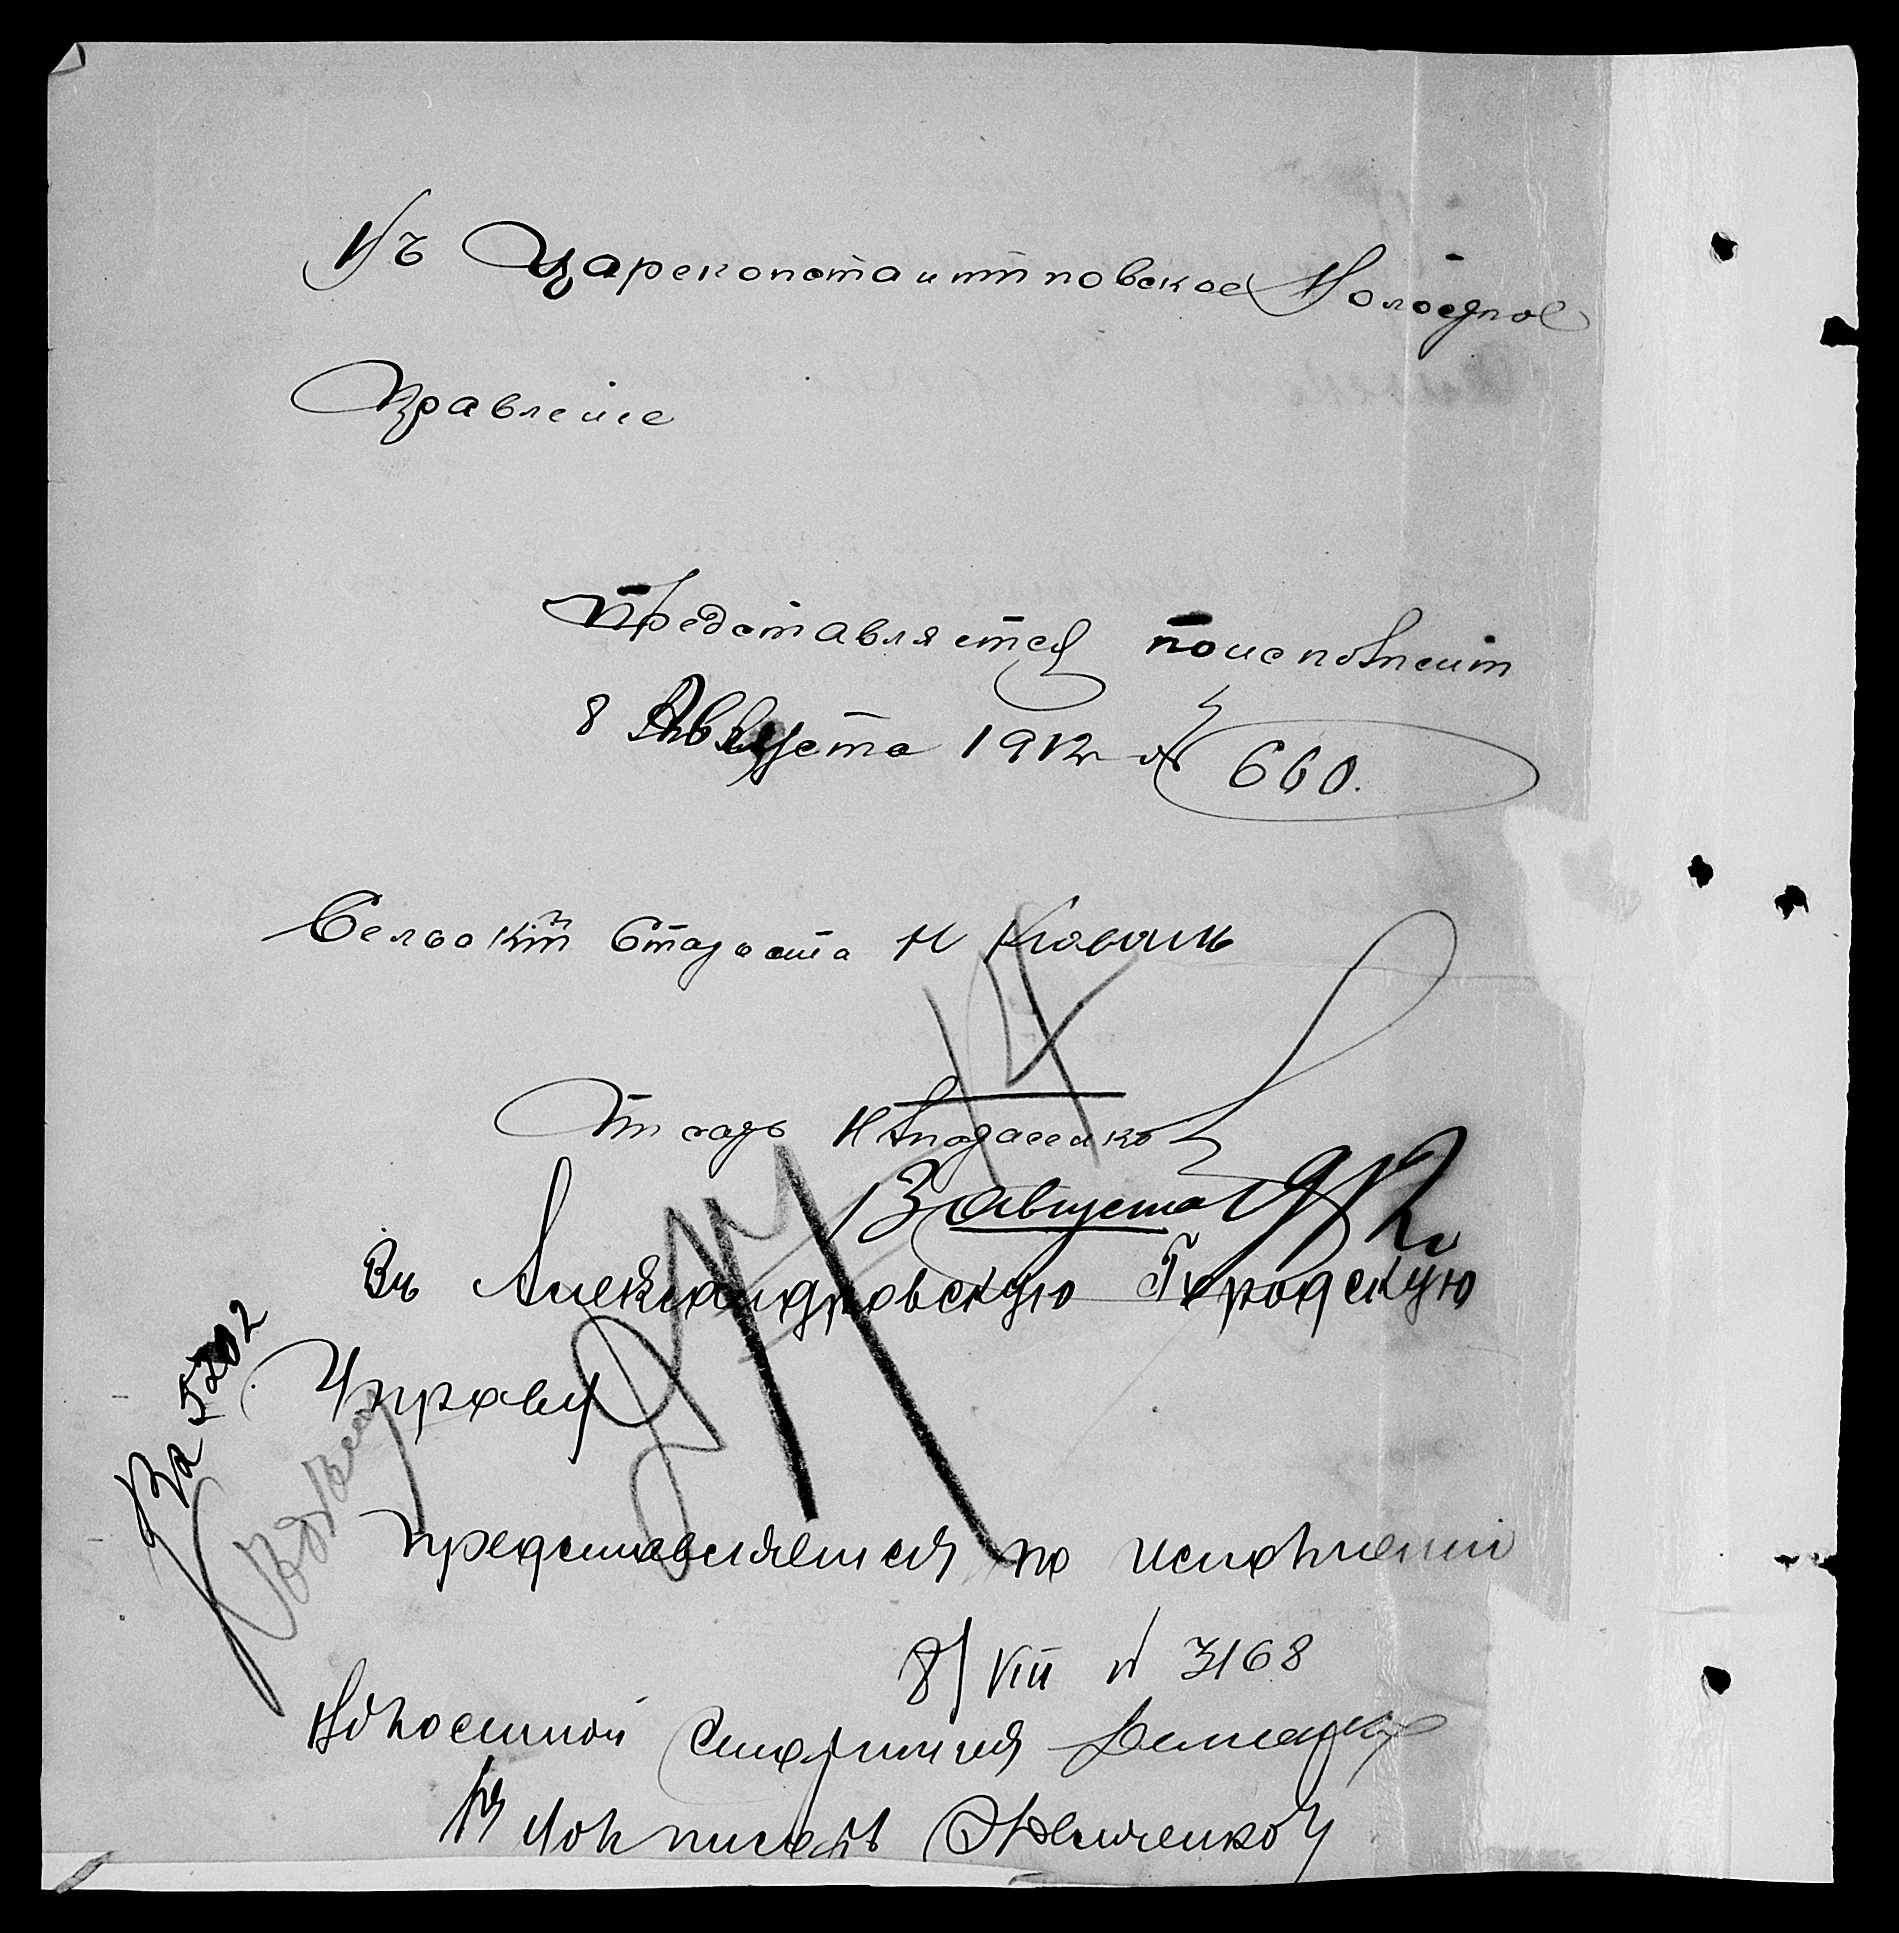 Въ Цареконстантиновское Волостное
Правление
Представляется по исполнении
8 Августа 1912 г № 660.
Сельский Староста Н Коваль
Писарь Н
13 Августа 1912
Въ Александровскую Городскую
Управу
Представляется по исполнении
8/VIII № 3168
Волостной Старшина
Вол писарь
5202